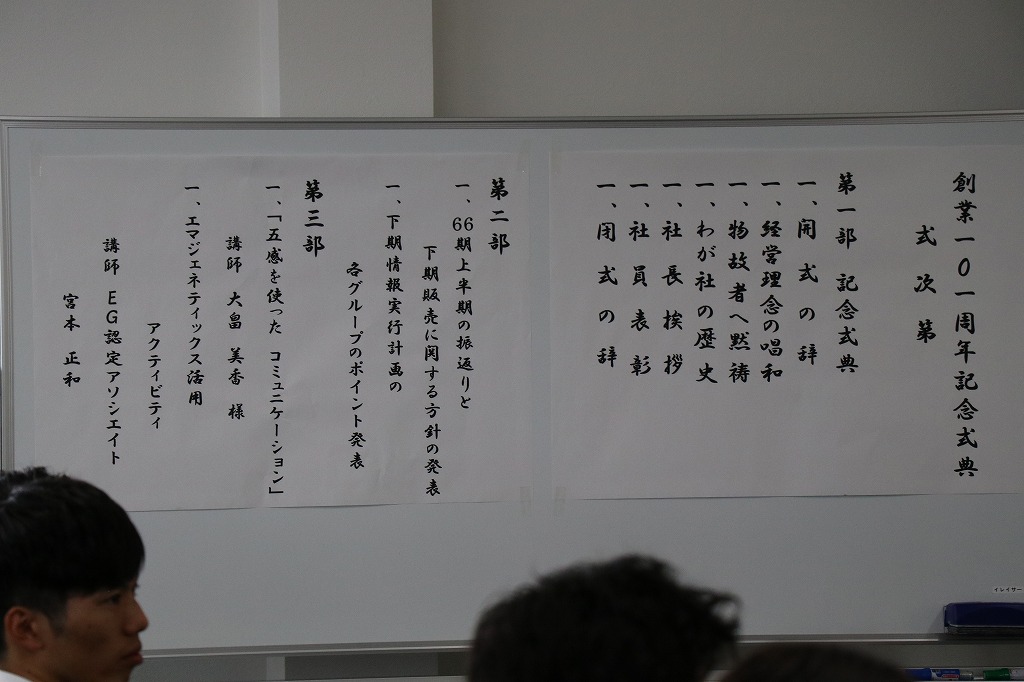 創業一〇一周年記念式典
式次第
第一部 記念式典
一、開式の辞
一、経営理念の唱和
一、物故者へ黙祷
一、わが社の歴史
一、社長挨拶
一、社員表彰
一、閉式の辞
第二部
一、66期上半期の振返りと
下期販売に関する方針の発表
一、下期情報実行計画の
各グループのポイント発表
第三部
一、「五感を使った コミュニケーション」
講師 大畠 美香 様
一、エマジェネティックス活用
アクティビティ
講師 EG認定アソシエイト
宮本 正和
イレイサー